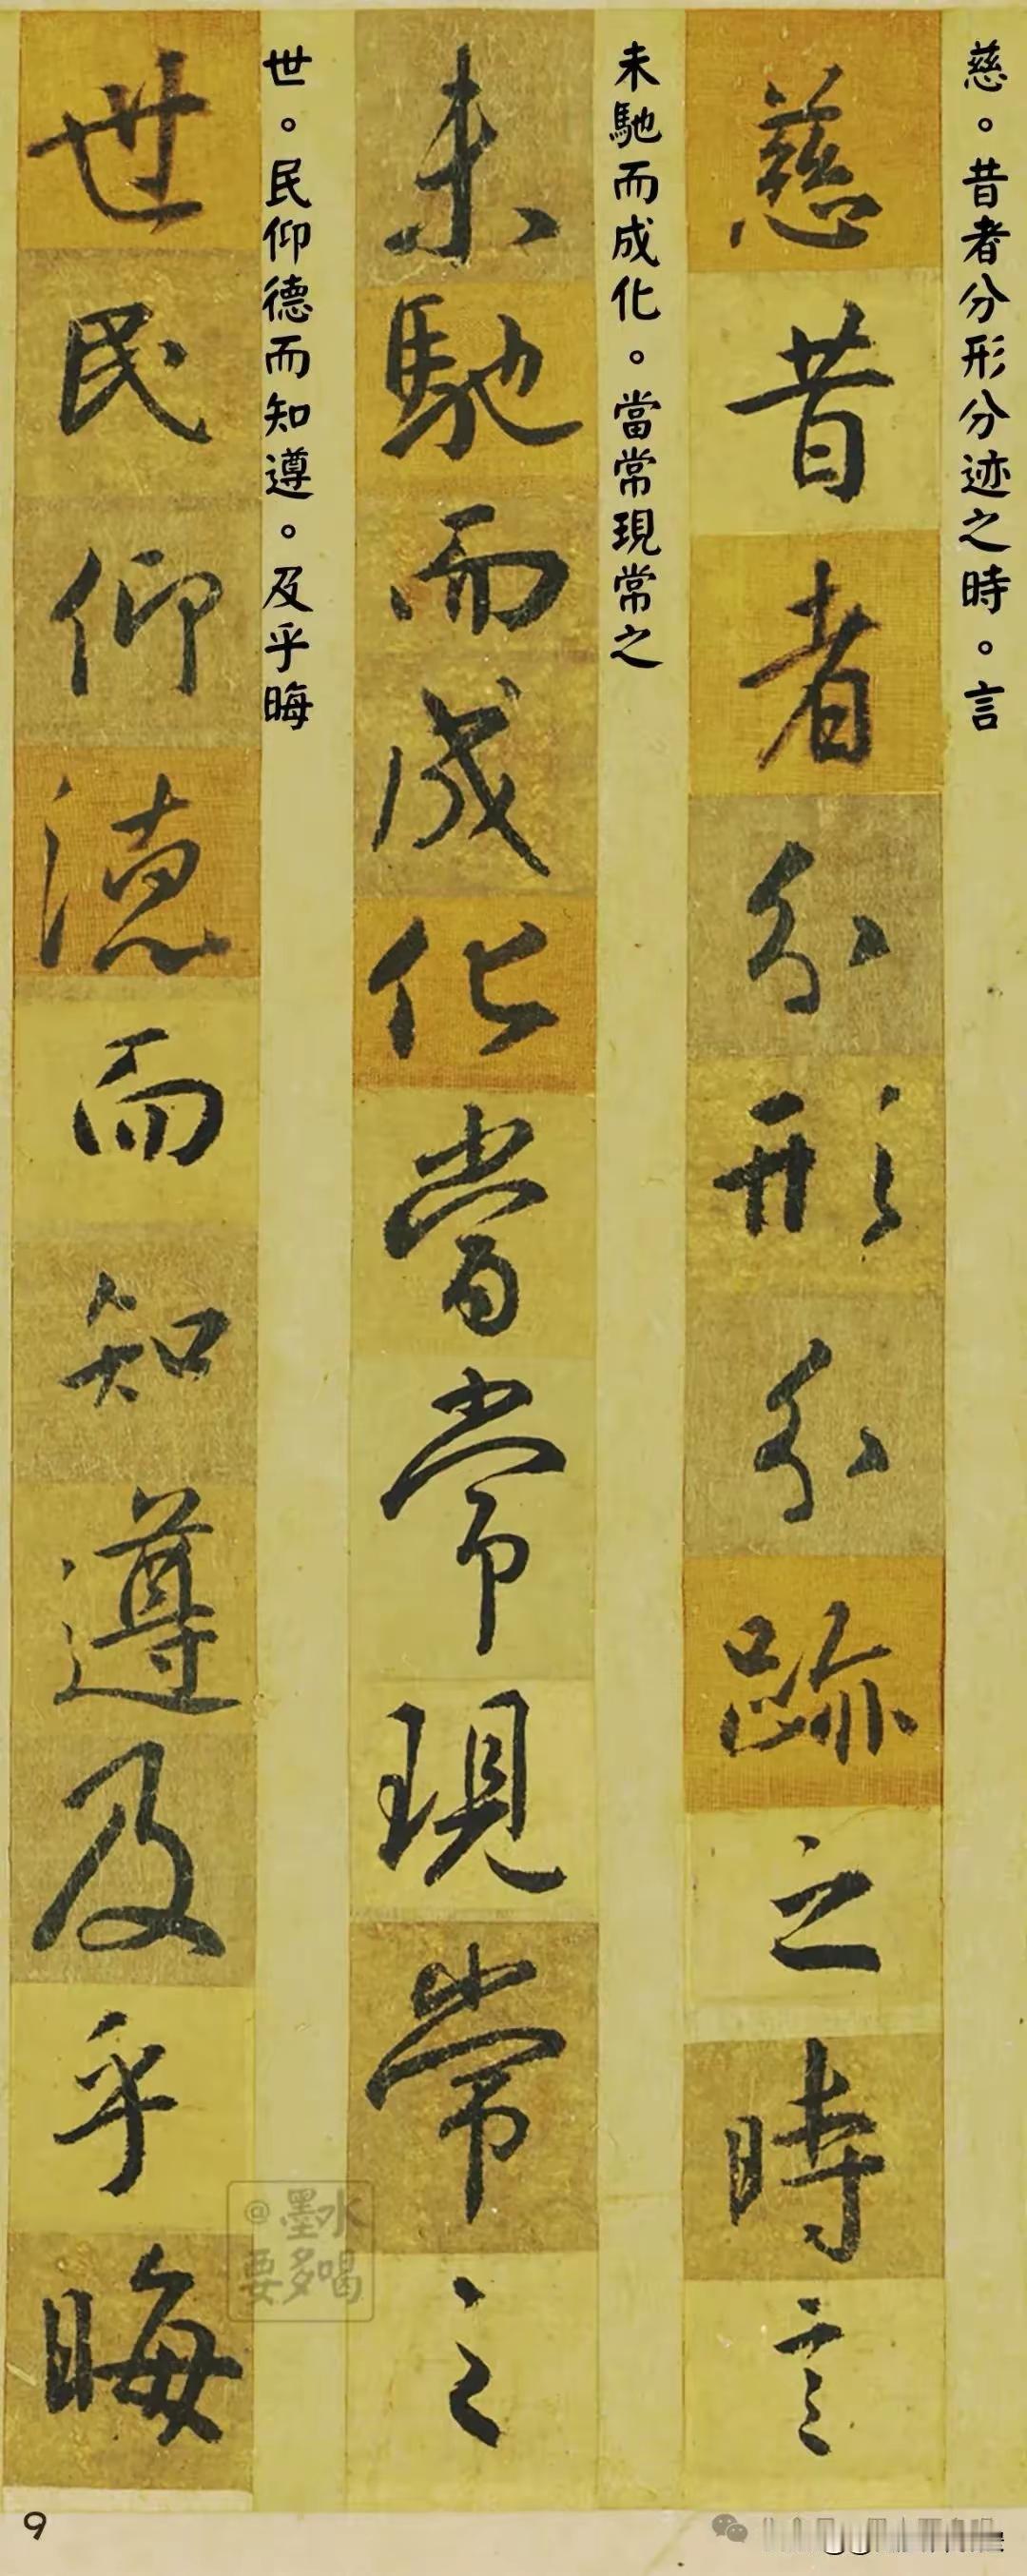 慈。昔者分形分迹之時。言
慈昔者分形分跡之時言
未馳而成化。當常現常之
未馳而成化當常現常之
世。民仰德而知遵。及乎晦
世民仰德而知遵及乎晦
@墨水
要多喝
9